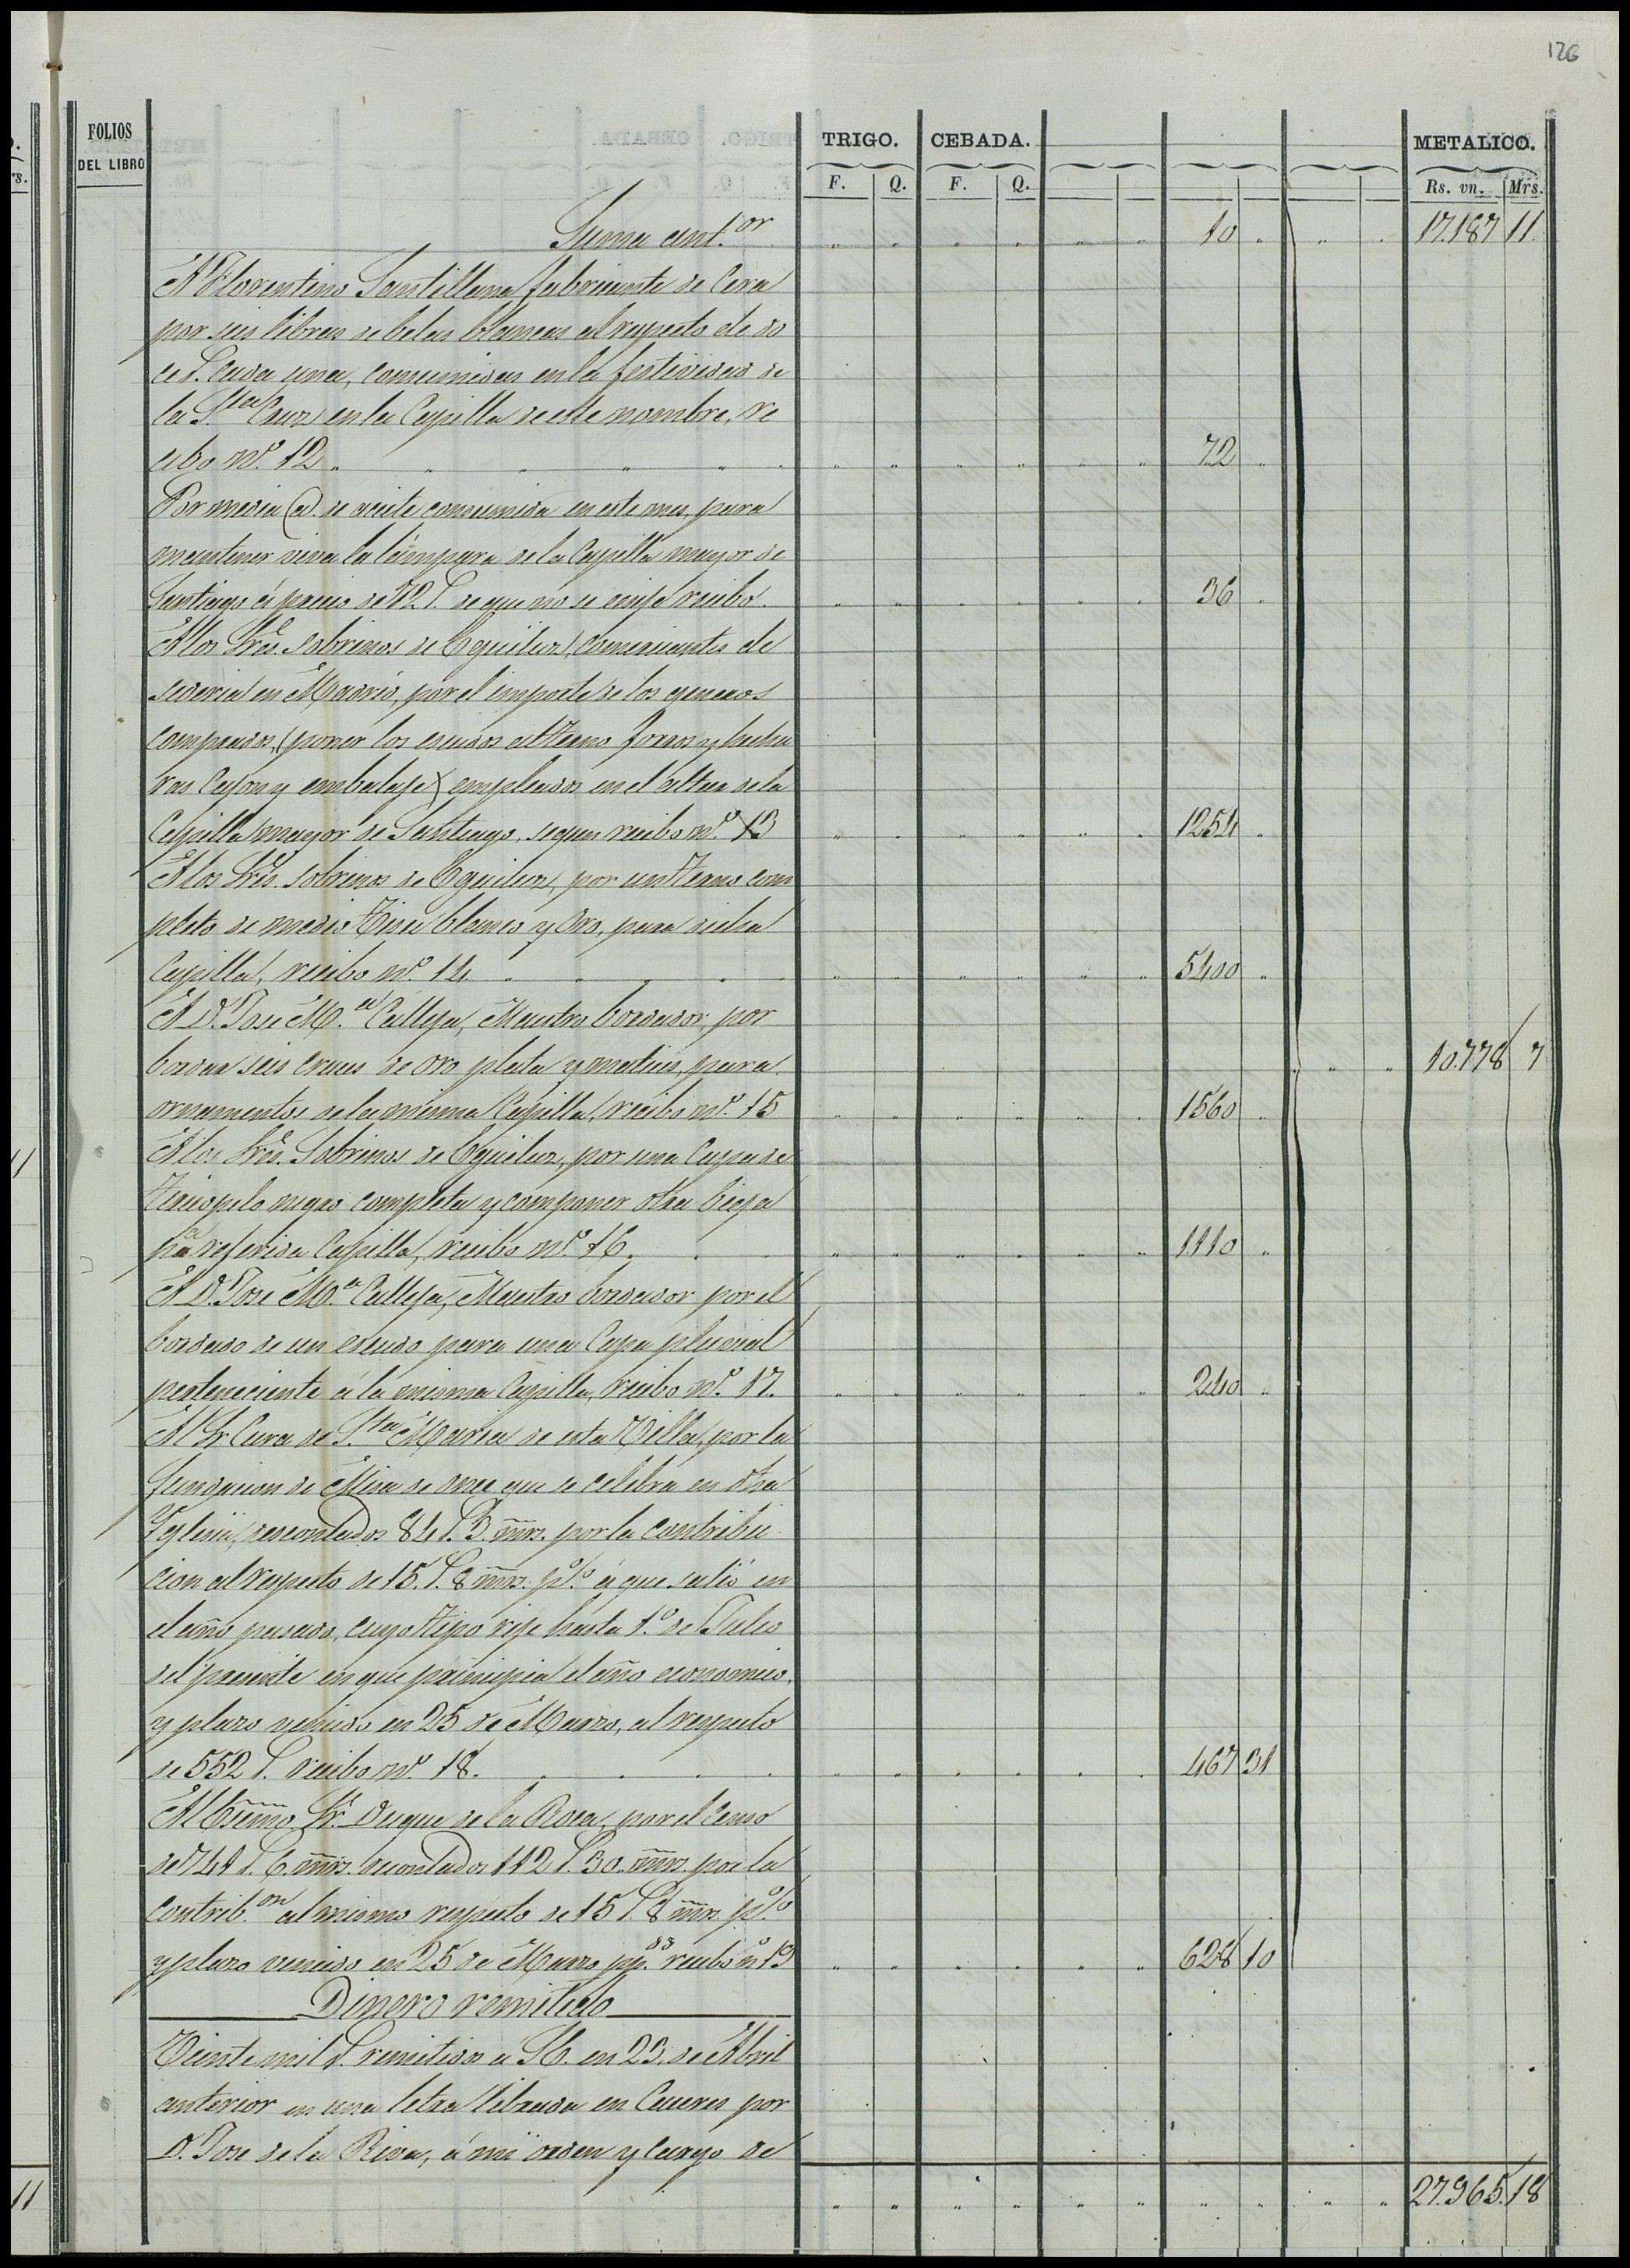 126
FOLIOS DEL LIBRO TRIGO. CEBADA. METALICO.
F. Q. F. Q. Rs. vn. Mrs.
Suma ant.or " " " " " " 10 " " " 17.187 11.
A Florentino Santillana fabricante de Cera
por seis libras de belas blancas al respecto de do
ce r. cada una, consumidas en la festividad de
la S.ta Cruz en la Capilla de este nombre, re
cibo n.º 12 " " " " " " 72 "
Por media @. de aceite consumida en este mes, para
mantener viva la lámpara de la Capilla mayor de
Santiago á precio de 72 r. de que no se exije recibo. " " " " " " 36 "
A los Sres. Sobrinos de Eguiluz, comerciantes de
sederia en Madrid, por el importe de los generos
comprados, (poner los escudos al terno forros y hechu
ras Cajon y embalaje) empleados en el altar de la
Capilla mayor de Santiago, segun recibo n.º 13 " " " " " " 1254 "
A los Sres. Sobrinos de Eguiluz, por un terno com
pleto de medio tisú blanco y oro, para dicha
Capilla, recibo n.º 14 " " " " " " 5400 "
A D. Jose M.a Calleja, Maestro bordador, por
bordar seis cruces de oro plata y matices, para " " 10.778 7
ornamentos de la misma Capilla, recibo n.º 15 " " " " " " 1560 "
A los Sres. Sobrinos de Eguiluz, por una Capa de
terciopelo negro completa y componer otra bieja
p.a referida Capilla, recibo n.º 16. " " " " " " 1.110 "
A D. Jose M.a Calleja, Maestro bordador por el
bordado de un escudo para una Capa pluvial
perteneciente á la misma Capilla, recibo n.º 17. " " " " " " 240 "
Al Sr Cura de S.ta Maria de esta Villa, por la
fundacion de Misa de once que se celebra en dha
Yglesia, descontados 84 r. 3. mrs. por la contribu
cion al respecto de 15. r. 8 mrs. p.º/º á que salió en
el año pasado, cuyo tipo rije hasta 1.º de Julio
del presente en que principia el año economico,
y plazo vencido en 25 de Marzo, al respecto
de 552 r. recibo n.º 18. " " " " " " 467 31
Al Excmo. Sr. Duque de la Roca, por el Censo
de 741 r. 6. mrs. descontados 112 r. 30. mrs. por la
contrib.on al mismo respecto de 15 r. 8 mrs. p.º/º
y plazo vencido en 25 de Marzo pp.do recibo nº 19 " " " " " " 628 10
Dinero remitido
Veinte mil r. remitidos á S.E. en 23. de Abril
anterior en una letra librada en Caceres por
D. Jose de la Riva, á mi orden y cargo de
" " " " " " " " " " 27.965. 18